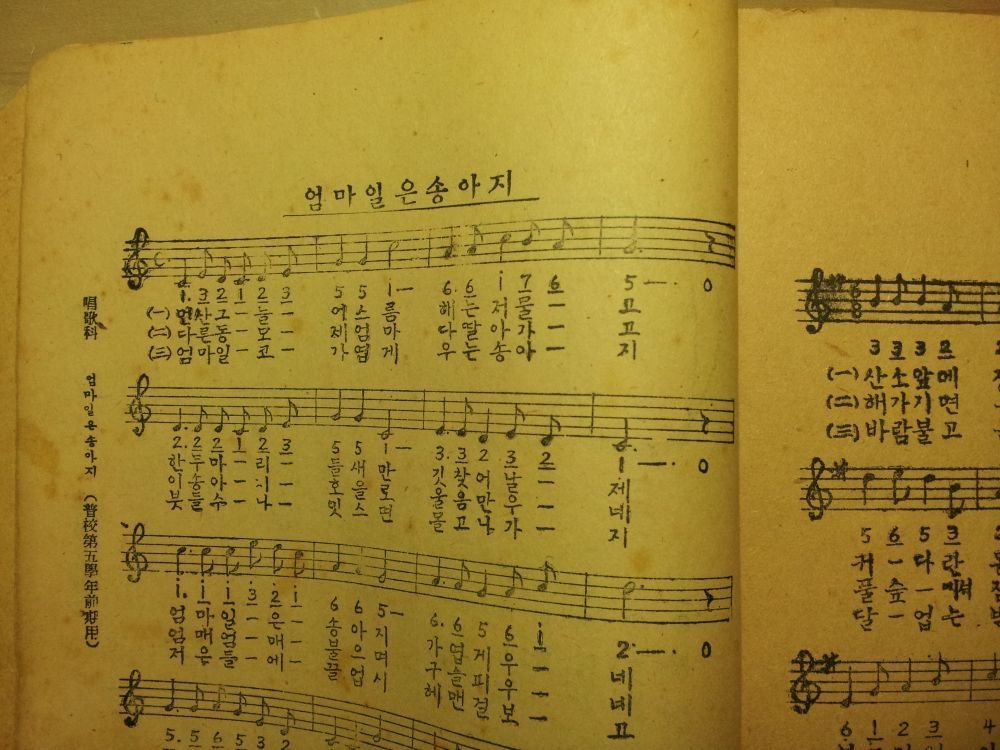 엄마일은송아지
1. 3 2 1 2 3 5 5 i — 6. 6 i 7 6 5 — 0
(一) 먼산그 — 늘 — 어스름 해는저물 — 고
(二) 다른동 — 모 — 제엄마 다딸아가 — 고
(三) 엄마일 — 코 — 가엽게 우는송아 — 지
2. 2 2 1 2 3 5 5 1 — 3. 3 2 3 2 1 — 0
한두마 — 리 — 들새만 깃찾어날 — 제
이송아 — 지 — 호을로 울음만우 — 네
붓들 — 수 — 나
i. i i 3 2 i 6 6 5 — 6. 6 5 6 i 2 — 0
엄마일 — 은 — 송아지 가엽게우 — 네
엄매엄 — 매 — 불으며 구슬피우 — 네
저은들 — 에
5. 5 6 5 3
唱歌科 엄마일은송아지 (普校第五學年前期用)
3 3 3 2
(一) 산소앞에
(二) 해가기면
(三) 바람불고
5 6 5 3
귀 — 다간
풀숲 — 에서
달 — 업는
6 1 2 3 4